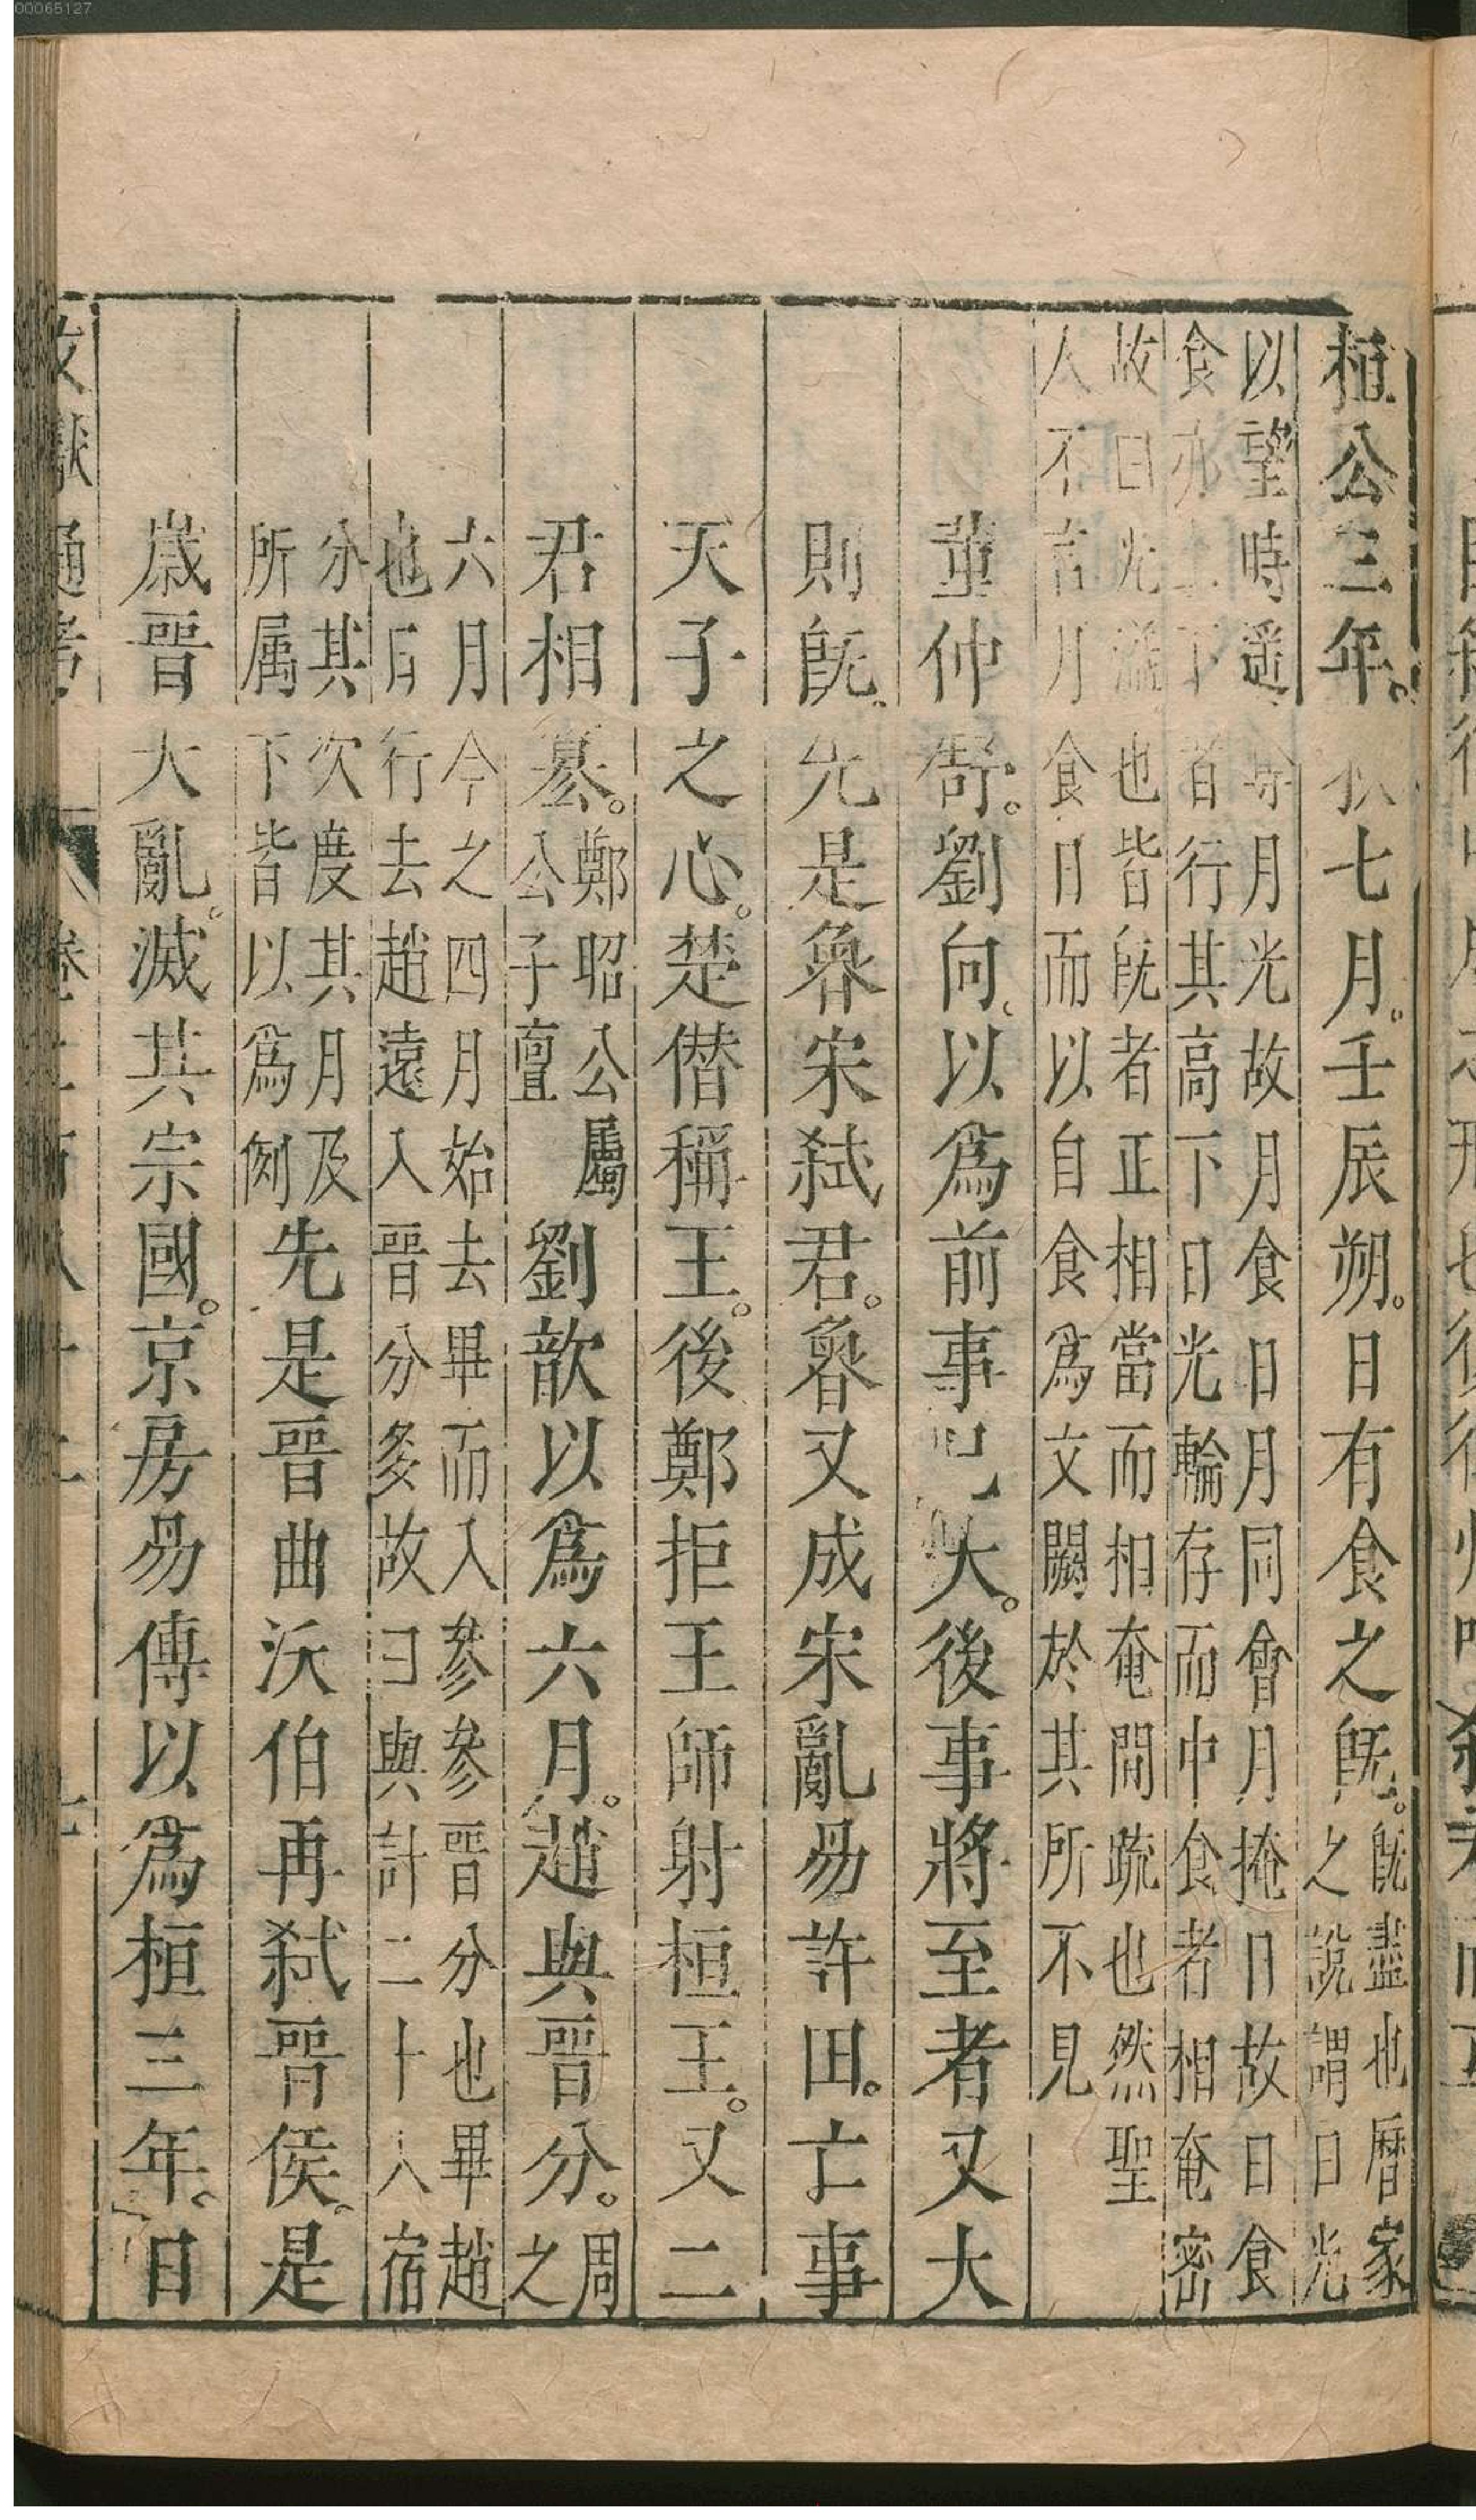 00065127
桓公三年。秋七月。壬辰朔。日有食之旣。旣盡也曆家之說謂日光
以望時遥奪月光故月食日月同會月掩日故日食
食亦上下者行其高下日光輪存而中食者相奄密
故日光溢也皆旣者正相當而相奄間疏也然聖
人不言月食日而以自食爲文闕於其所不見
董仲舒。劉向。以爲前事已大。後事將至者又大
則旣。先是魯宋弑君。魯又成宋亂易許田。亡事
天子之心。楚僭稱王。後鄭拒王師射桓王。又二
君相簒。鄭昭公屬公子亶劉歆以爲六月。趙與晉分。周之
六月今之四月始去畢而入參參晉分也畢趙
也日行去趙遠入晉分多故曰與計二十八宿
分其次度其月及所属下皆以爲例先是晉曲沃伯再弑晉侯。是
歲晉大亂。滅其宗國。京房易傳以爲桓三年。日
文獻通考